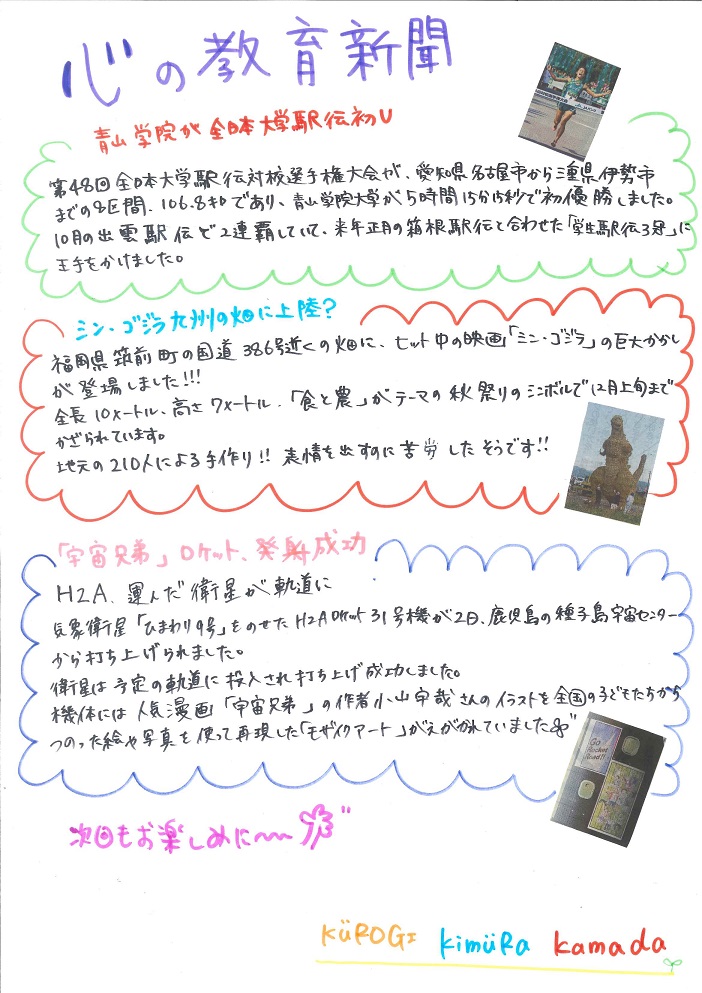 心の教育新聞
青山学院が全日本大学駅伝初V
第48回全日本大学駅伝対校選手権大会が、愛知県名古屋市から三重県伊勢市
までの8区間、106.8キロであり、青山学院大学が5時間15分15秒で初優勝しました。
10月の出雲駅伝で2連覇していて、来年正月の箱根駅伝と合わせた「学生駅伝3冠」に
王手をかけました。
ミン・ゴジラ九州の畑に上陸?
福岡県筑前町の国道386号近くの畑に、ヒット中の映画「ミン・ゴジラ」の巨大かかし
が登場しました!!!
全長10メートル、高さ7メートル、「食と農」がテーマの秋祭りのシンボルで12月上旬まで
かざられています。
地元の210人による手作り!!表情を出すのに苦労したそうです!!
「宇宙兄弟」ロケット、発射成功
H2A、運んだ衛星が軌道に
気象衛星「ひまわり9号」をのせたH2Aロケット31号機が2日、鹿児島の種子島宇宙センター
から打ち上げられました。
衛星は予定の軌道に投入され打ち上げ成功しました。
機体には人気漫画「宇宙兄弟」の作者小山宙哉さんのイラストを全国の子どもたちから
つのった絵や写真を使って再現した「モザイクアート」がえがかれていました
Go Rocket Road!!
次回もお楽しみに〜〜
KÜROGI kimüRa kamada